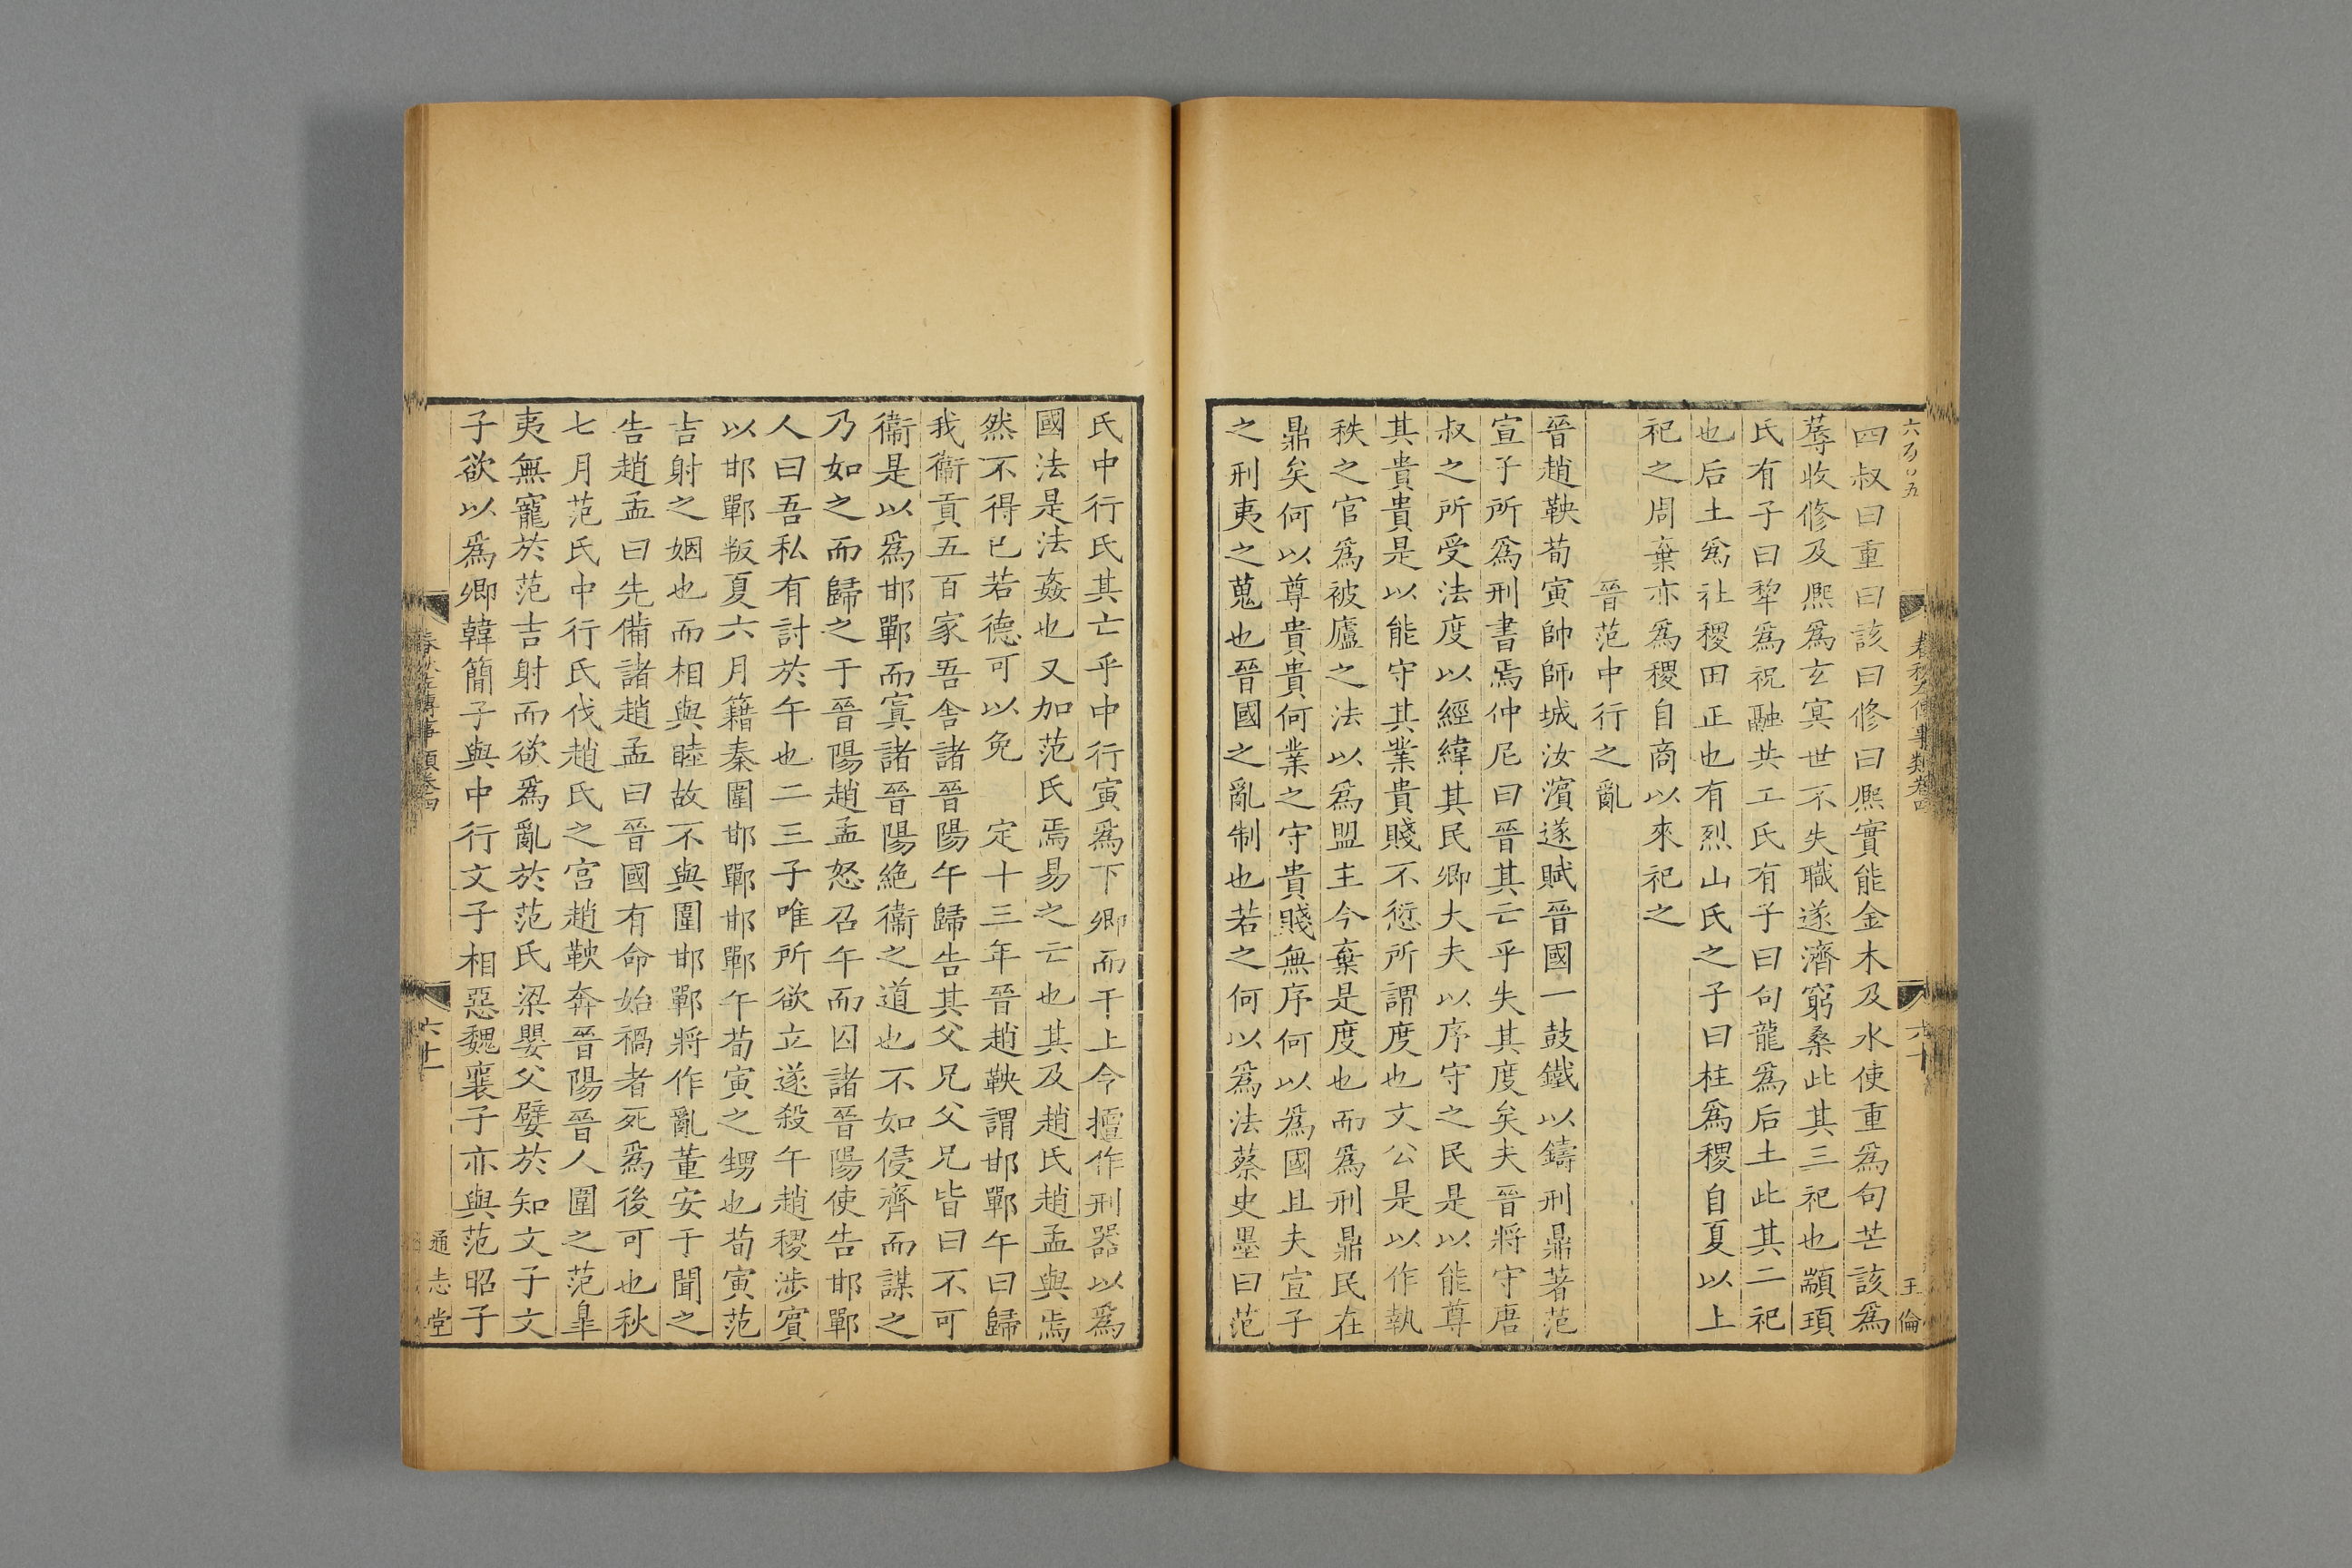 四叔曰重曰該曰修曰熈實能金木及水使重爲句芒該爲
蓐收修及熈爲玄冥世不失職遂濟窮桑此其三祀也顓頊
氏有子曰犂爲祝融共工氏有子曰句龍爲后土此其二祀
也后土爲社稷田正也有烈山氏之子曰柱爲稷自夏以上
祀之周棄亦爲稷自商以來祀之
晉范中行之亂
晉趙鞅荀寅帥師城汝濱遂賦晉國一鼓鐵以鑄刑鼎著范
宣子所爲刑書焉仲尼曰晉其亡乎失其度矣夫晉將守唐
叔之所受法度以經緯其民卿大夫以序守之民是以能尊
其貴貴是以能守其業貴賤不愆所謂度也文公是以作執
秩之官爲被廬之法以爲盟主今棄是度也而爲刑鼎民在
鼎矣何以尊貴貴何業之守貴賤無序何以爲國且夫宣子
之刑夷之蒐也晉國之亂制也若之何以爲法蔡史墨曰范
春秋左傳事類卷四
六十
王倫
氏中行氏其亡乎中行寅爲下卿而干上令擅作刑器以爲
國法是法姦也又加范氏焉易之亡也其及趙氏趙孟與焉
然不得已若德可以免 定十三年晉趙鞅謂邯鄲午曰歸
我衞貢五百家吾舍諸晉陽午歸告其父兄父兄皆曰不可
衞是以爲邯鄲而寘諸晉陽絶衞之道也不如侵齊而謀之
乃如之而歸之于晉陽趙孟怒召午而囚諸晉陽使告邯鄲
人曰吾私有討於午也二三子唯所欲立遂殺午趙稷涉賓
以邯鄲叛夏六月籍秦圍邯鄲邯鄲午荀寅之甥也荀寅范
吉射之姻也而相與睦故不與圍邯鄲將作亂董安于聞之
告趙孟曰先備諸趙孟曰晉國有命始禍者死爲後可也秋
七月范氏中行氏伐趙氏之宮趙鞅奔晉陽晉人圍之范臯
夷無寵於范吉射而欲爲亂於范氏梁嬰父嬖於知文子文
子欲以爲卿韓簡子與中行文子相惡魏襄子亦與范昭子
春秋左傳事類卷四
六十一
通志堂